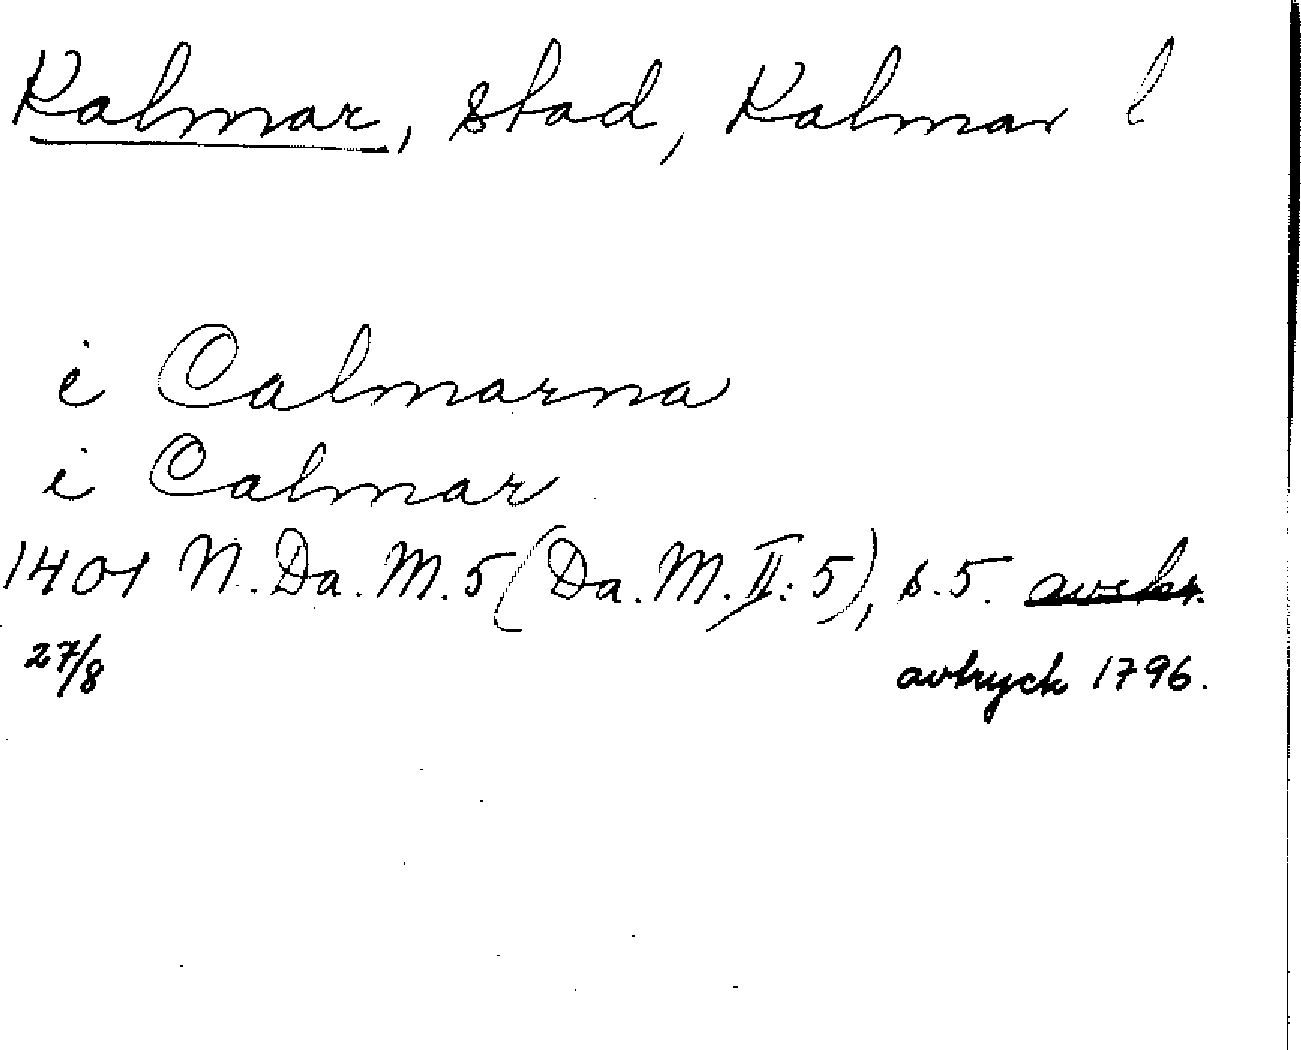 Kalmar, stad, Kalmar l
i Calmarna
i Calmar
1401 N.Da.M.5 (Da.M.II:5), s.5. avskr.
27/8 avtryck 1796.